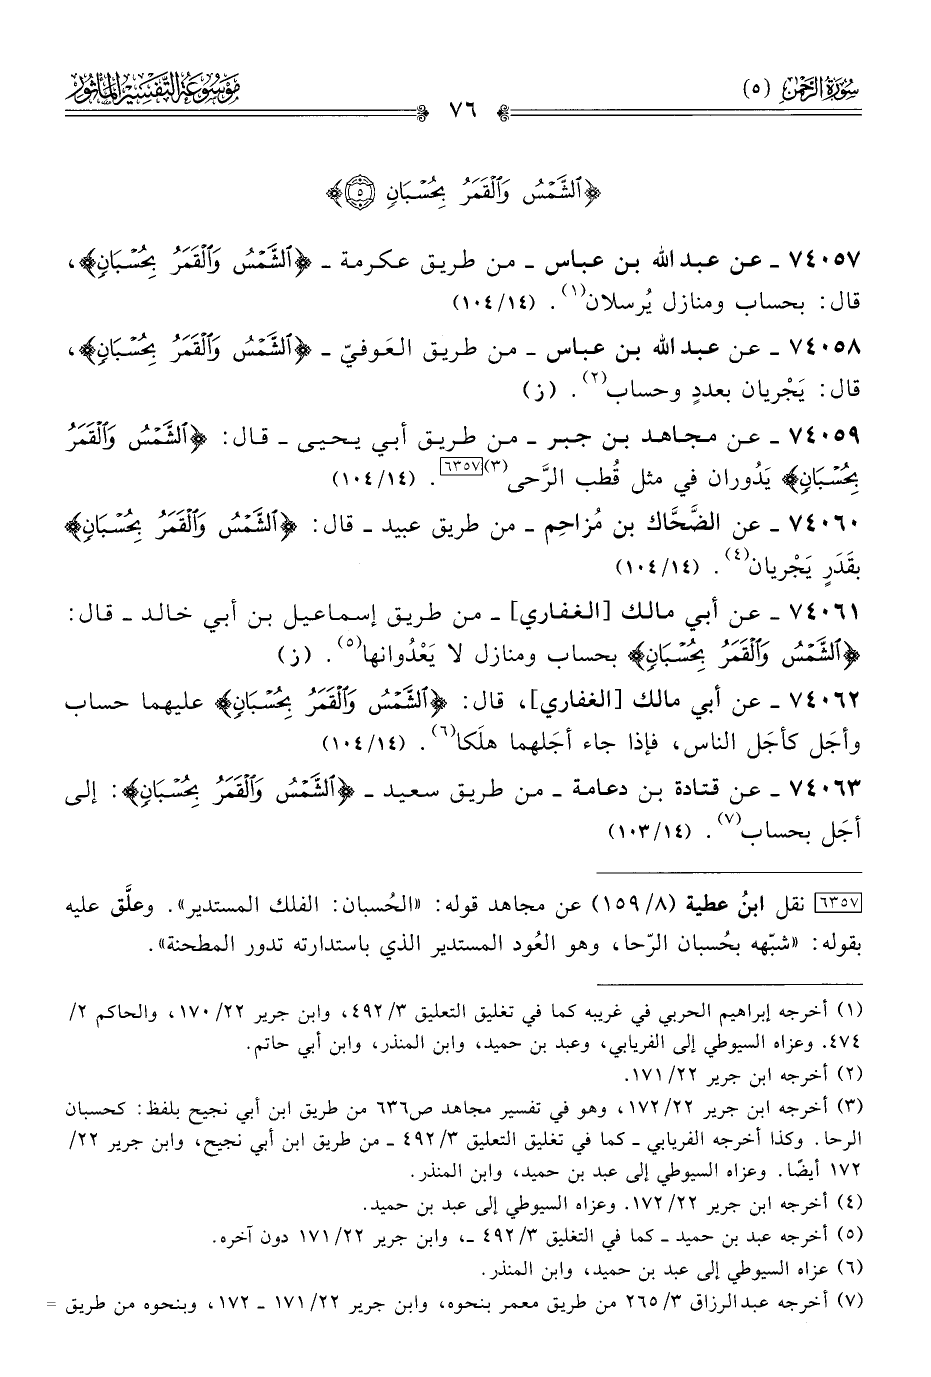 سُورَةُ الرَّحْمٰن (٥)
٧٦
مَوْسُوعَةُ التَّفْسِيرِ المَأْثُور
﴿ٱلشَّمْسُ وَٱلْقَمَرُ بِحُسْبَانٍ ٥﴾
٧٤٠٥٧ ـ عن عبد الله بن عباس ـ من طريق عكرمة ـ ﴿ٱلشَّمْسُ وَٱلْقَمَرُ بِحُسْبَانٍ﴾،
قال: بحساب ومنازل يُرسلان(١). (١٠٤/١٤)
٧٤٠٥٨ ـ عن عبد الله بن عباس ـ من طريق العَوفيّ ـ ﴿ٱلشَّمْسُ وَٱلْقَمَرُ بِحُسْبَانٍ﴾،
قال: يَجْريان بعددٍ وحساب(٢). (ز)
٧٤٠٥٩ ـ عن مجاهد بن جبر ـ من طريق أبي يحيى ـ قال: ﴿ٱلشَّمْسُ وَٱلْقَمَرُ
بِحُسْبَانٍ﴾ يَدُوران في مثل قُطب الرَّحى(٣)[٦٣٥٧]. (١٠٤/١٤)
٧٤٠٦٠ ـ عن الضَّحَّاك بن مُزاحِم ـ من طريق عبيد ـ قال: ﴿ٱلشَّمْسُ وَٱلْقَمَرُ بِحُسْبَانٍ﴾
بقَدَرٍ يَجْريان(٤). (١٠٤/١٤)
٧٤٠٦١ ـ عن أبي مالك [الغفاري] ـ من طريق إسماعيل بن أبي خالد ـ قال:
﴿ٱلشَّمْسُ وَٱلْقَمَرُ بِحُسْبَانٍ﴾ بحساب ومنازل لا يَعْدُوانها(٥). (ز)
٧٤٠٦٢ ـ عن أبي مالك [الغفاري]، قال: ﴿ٱلشَّمْسُ وَٱلْقَمَرُ بِحُسْبَانٍ﴾ عليهما حساب
وأجَل كأجَل الناس، فإذا جاء أجَلهما هلَكا(٦). (١٠٤/١٤)
٧٤٠٦٣ ـ عن قتادة بن دعامة ـ من طريق سعيد ـ ﴿ٱلشَّمْسُ وَٱلْقَمَرُ بِحُسْبَانٍ﴾: إلى
أجَل بحساب(٧). (١٠٣/١٤)
[٦٣٥٧] نقل ابنُ عطية (١٥٩/٨) عن مجاهد قوله: «الحُسبان: الفلك المستدير». وعلَّق عليه
بقوله: «شبّهه بحُسبان الرّحا، وهو العُود المستدير الذي باستدارته تدور المطحنة».
(١) أخرجه إبراهيم الحربي في غريبه كما في تغليق التعليق ٤٩٢/٣، وابن جرير ١٧٠/٢٢، والحاكم ٢/
٤٧٤. وعزاه السيوطي إلى الفريابي، وعبد بن حميد، وابن المنذر، وابن أبي حاتم.
(٢) أخرجه ابن جرير ١٧١/٢٢.
(٣) أخرجه ابن جرير ١٧٢/٢٢، وهو في تفسير مجاهد ص٦٣٦ من طريق ابن أبي نجيح بلفظ: كحسبان
الرحا. وكذا أخرجه الفريابي ـ كما في تغليق التعليق ٤٩٢/٣ ـ من طريق ابن أبي نجيح، وابن جرير ٢٢/
١٧٢ أيضًا. وعزاه السيوطي إلى عبد بن حميد، وابن المنذر.
(٤) أخرجه ابن جرير ١٧٢/٢٢. وعزاه السيوطي إلى عبد بن حميد.
(٥) أخرجه عبد بن حميد ـ كما في التغليق ٤٩٢/٣ ـ، وابن جرير ١٧١/٢٢ دون آخره.
(٦) عزاه السيوطي إلى عبد بن حميد، وابن المنذر.
(٧) أخرجه عبد الرزاق ٢٦٥/٣ من طريق معمر بنحوه، وابن جرير ١٧١/٢٢ ـ ١٧٢، وبنحوه من طريق =